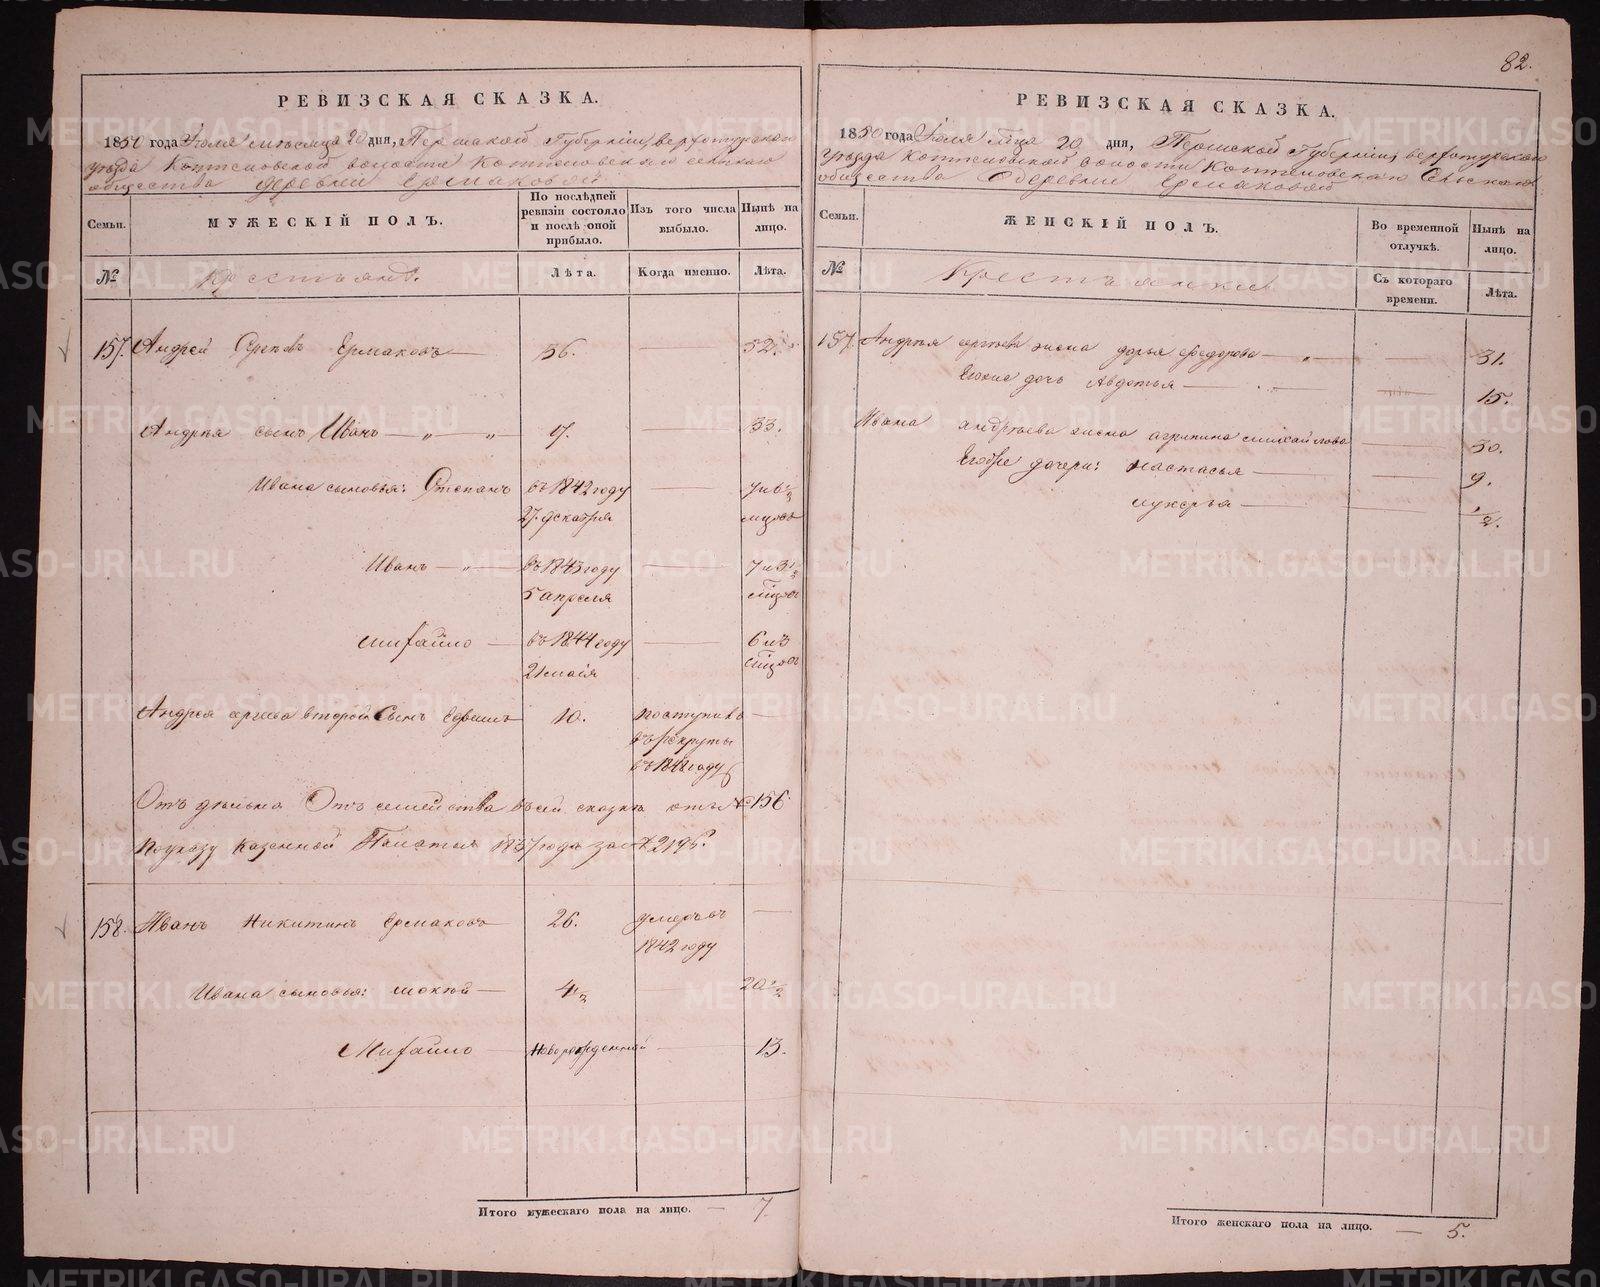 82.
РЕВИЗСКАЯ СКАЗКА.
1850 года Іюля мѣсяца 20 дня, Пермской Губерніи, верхотурского
уѣзда Коптеловской волости Коптеловскаго сельскаго
общества деревни Ермаковой
Семьи.
МУЖЕСКІЙ ПОЛЪ.
По послѣдней ревизіи состояло и послѣ оной прибыло.
Изъ того числа выбыло.
Нынѣ на лицо.
№
Крестьянъ.
Лѣта.
Когда именно.
Лѣта.
157. Андрей Ермаковъ — 36. — 52.
Андрея сынъ Иванъ — „ — „ 17. — 33.
Ивана сыновья: Степанъ въ 1842 году — 7 и 6 1/2
27 декабря мцовъ
Иванъ — „ — въ 1843 году — 7 и 3 1/2
5 апреля мцовъ
Михайло — въ 1844 году — 6 и 3
21 маія мцовъ
Андрея второй сынъ 10. поступилъ —
въ рекруты
въ 1848 году
Отъ семейства въ сей сказкѣ № 156
по указу Казенной Палаты 1837 года за №
158. Иванъ Никитинъ Ермаковъ 26. умеръ въ —
1842 году
Ивана сыновья: Мокѣй — 4 1/2 — 20 1/2
Михайло — новорожденный — 13.
Итого мужескаго пола на лицо. — 7.
РЕВИЗСКАЯ СКАЗКА.
1850 года Іюля мца 20 дня, Пермской Губерніи, верхотурского
уѣзда Коптеловской волости Коптеловскаго Сельскаго
общества деревни Ермаковой
Семьи.
ЖЕНСКІЙ ПОЛЪ.
Во временной отлучкѣ.
Нынѣ на лицо.
№
Крестьянки
Съ котораго времени.
Лѣта.
157 Андрея жена дарья федорова — „ — 31.
Егоже дочь Авдотья — 15.
Ивана андрѣева жена агрипина михайлова — 30.
Егоже дочери: настасья — 9.
лукерья — 1/2.
Итого женскаго пола на лицо. — 5.
METRIKI.GASO-URAL.RU